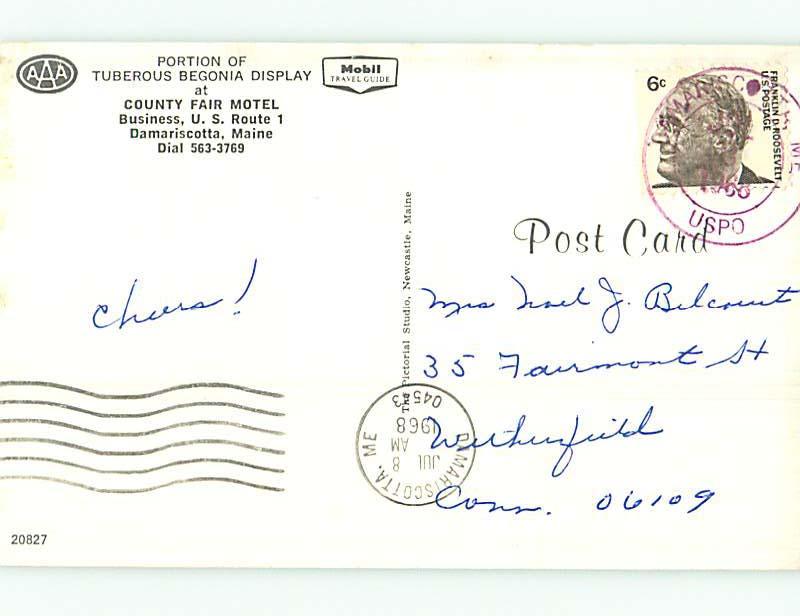 AAA
PORTION OF
TUBEROUS BEGONIA DISPLAY
at
COUNTY FAIR MOTEL
Business, U. S. Route 1
Damariscotta, Maine
Dial 563-3769
Mobil
TRAVEL GUIDE
6c
FRANKLIN D. ROOSEVELT
U.S. POSTAGE
DAMARISCOTTA, ME
USPO
Post Card
The Pictorial Studio, Newcastle, Maine
cheers!
Mrs Noel J. Belcourt
35 Fairmont St
Wethersfield
Conn. 06109
DAMARISCOTTA, ME
JUL 8
AM
1968
04543
20827